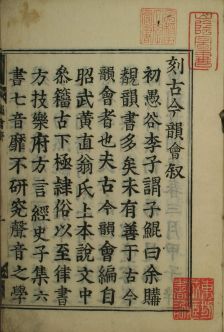 刻古今韻會叙
初愚谷李子謂予鯤曰余購
覯韻書多矣未有善于古今
韻會者也夫古今韻會編自
昭武黃直翁氏上本說文中
叅籀古下極隸俗以至律書
方技樂府方言經史子集六
書七音靡不研究聲音之學